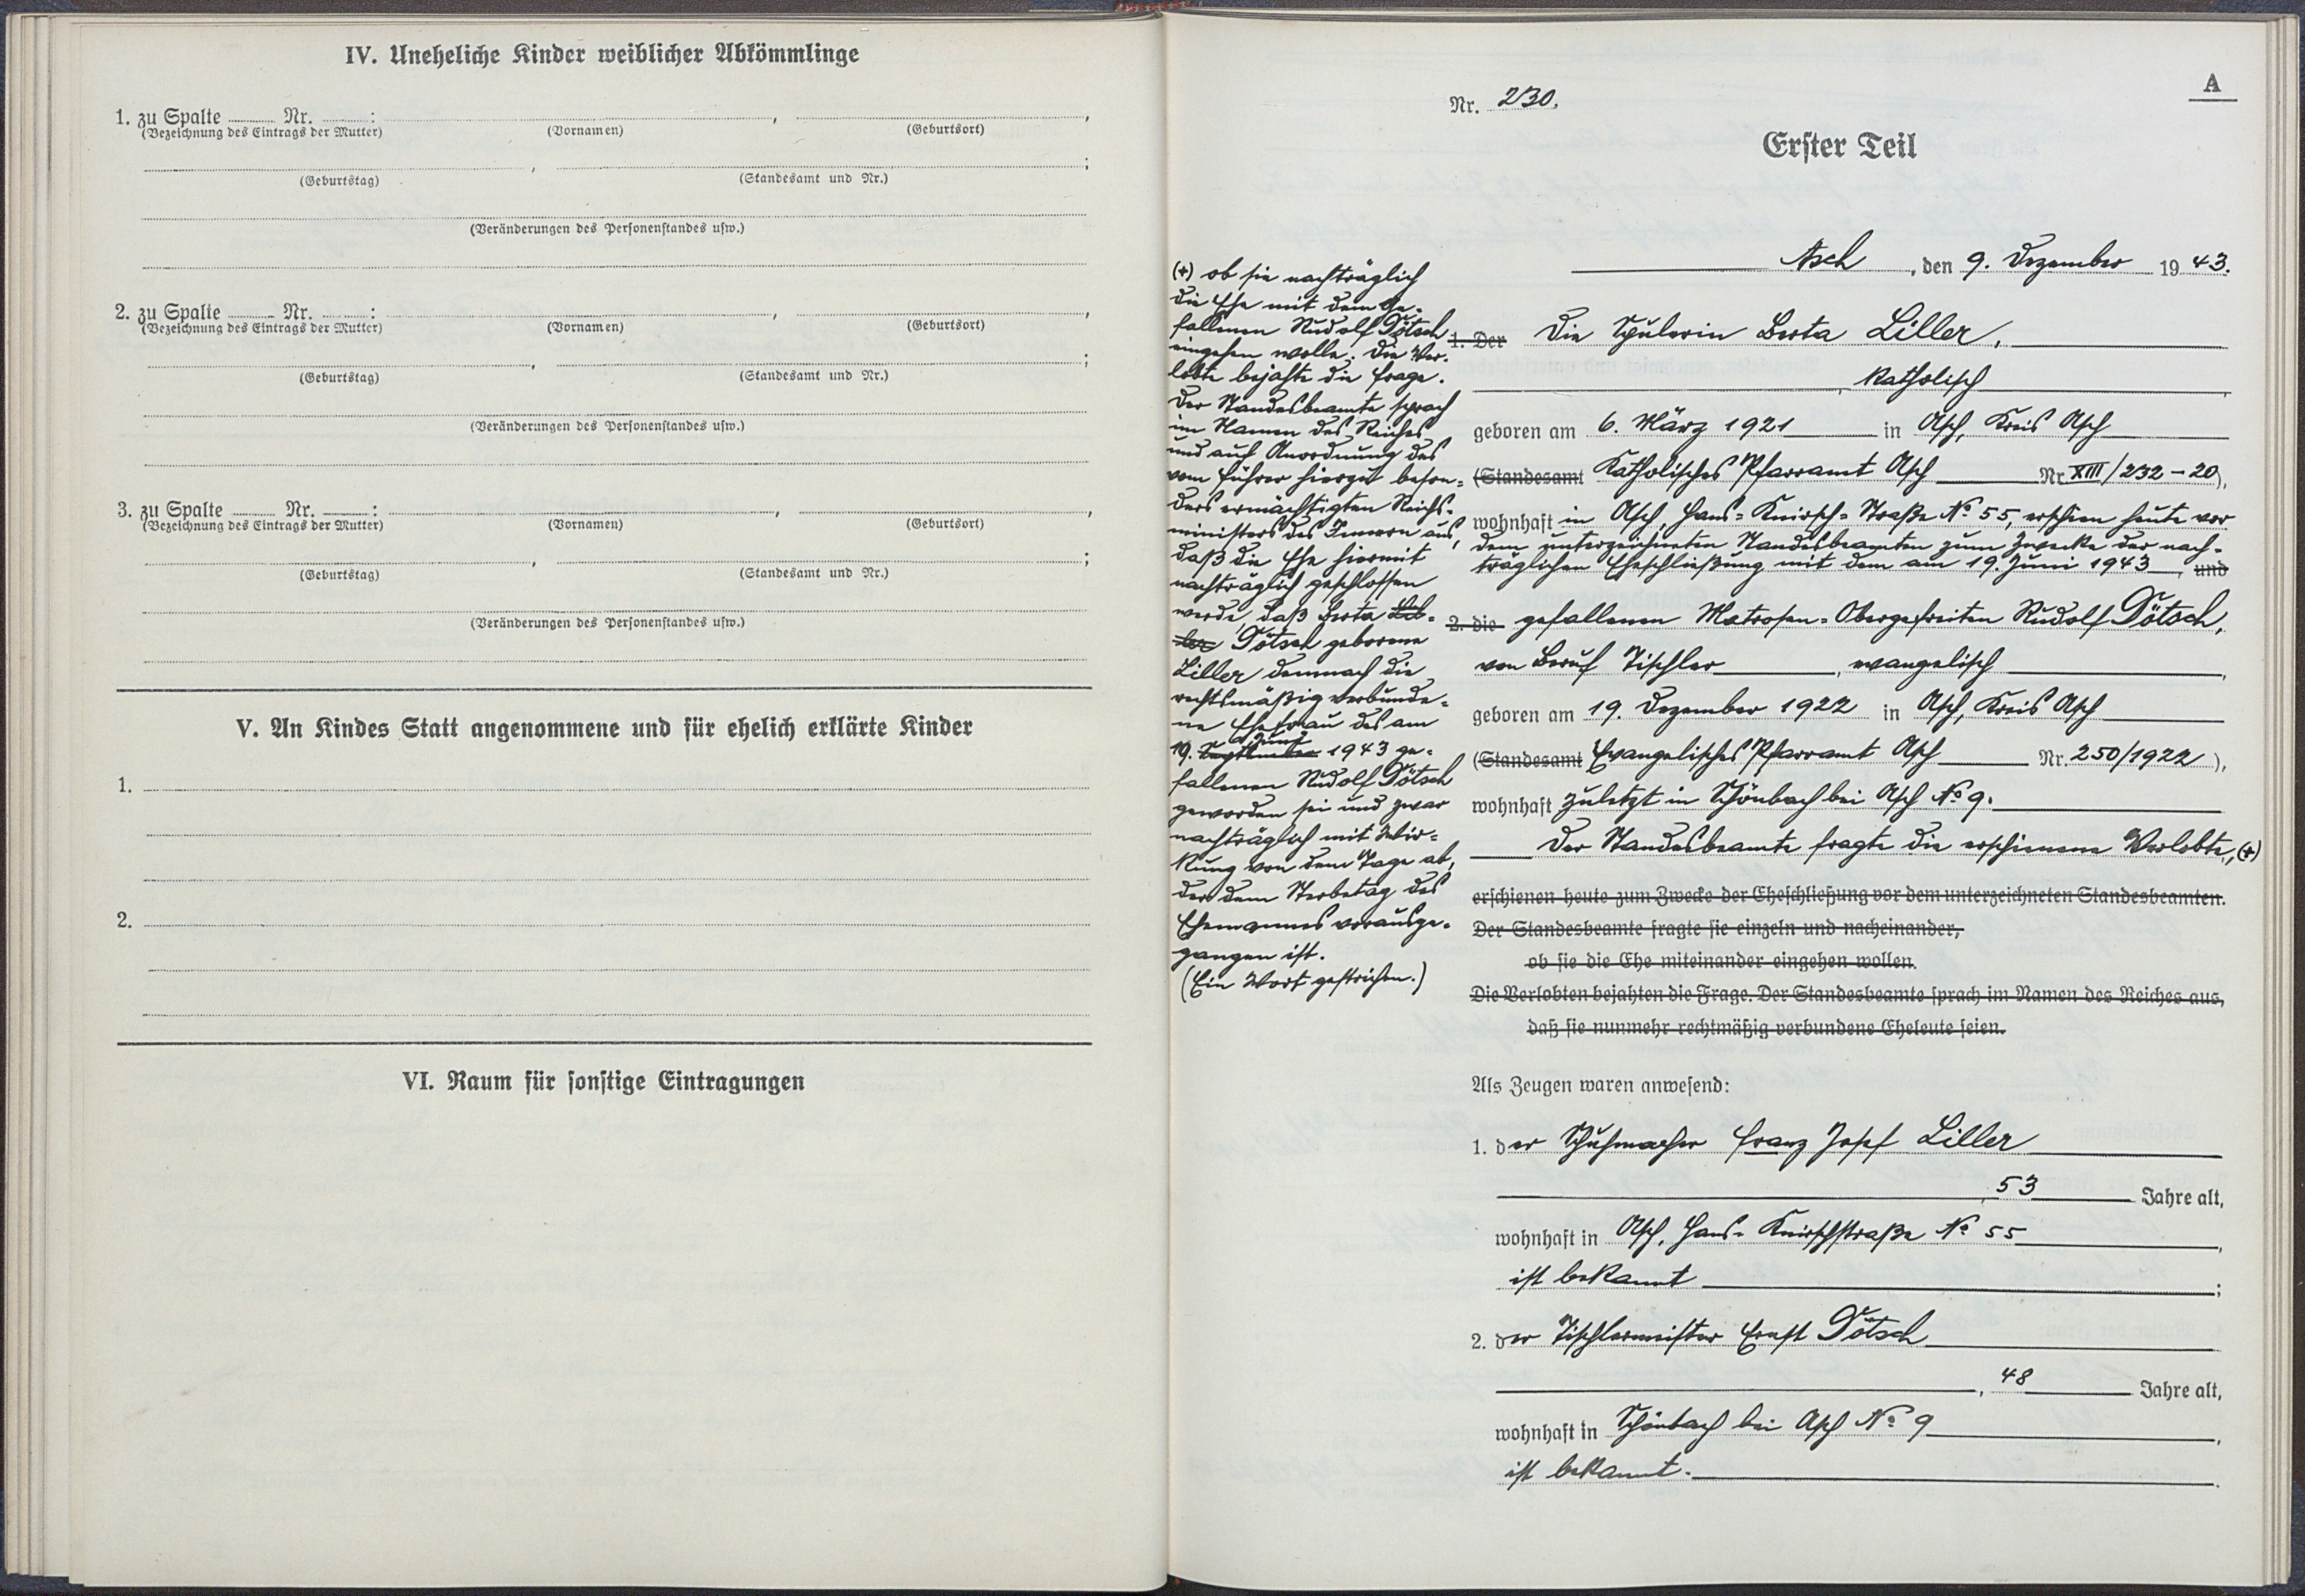 IV. Uneheliche Kinder weiblicher Abkömmlinge
1. zu Spalte ........ Nr. ........: , ,
(Bezeichnung des Eintrags der Mutter) (Vornamen) (Geburtsort)
, ;
(Geburtstag) (Standesamt und Nr.)
(Veränderungen des Personenstandes usw.)
2. zu Spalte ........ Nr. ........: , ,
(Bezeichnung des Eintrags der Mutter) (Vornamen) (Geburtsort)
, ;
(Geburtstag) (Standesamt und Nr.)
(Veränderungen des Personenstandes usw.)
3. zu Spalte ........ Nr. ........: , ,
(Bezeichnung des Eintrags der Mutter) (Vornamen) (Geburtsort)
, ;
(Geburtstag) (Standesamt und Nr.)
(Veränderungen des Personenstandes usw.)
V. An Kindes Statt angenommene und für ehelich erklärte Kinder
1.
2.
VI. Raum für sonstige Eintragungen
A
Nr. 230.
Erster Teil
Asch, den 9. Dezember 1943.
1. Der Die Schülerin Berta Liller,
, katholisch,
geboren am 6. März 1921 in Asch, Kreis Asch
(Standesamt Katholisches Pfarramt Asch Nr. XIII/232-20),
wohnhaft in Asch, Hans-Knirsch-Straße No 55, erschien heute vor
dem unterzeichneten Standesbeamten zum Zwecke der nach-
träglichen Eheschließung mit dem am 19. Juni 1943, und
2. die gefallenen Matrosen-Obergefreiten Rudolf Dötsch,
von Beruf Tischler, evangelisch,
geboren am 19. Dezember 1922 in Asch, Kreis Asch
(Standesamt Evangelisches Pfarramt Asch Nr. 250/1922),
wohnhaft zuletzt in Schönbach bei Asch No 9.
Der Standesbeamte fragte die erschienene Verlobte, (+)
erschienen heute zum Zwecke der Eheschließung vor dem unterzeichneten Standesbeamten.
Der Standesbeamte fragte sie einzeln und nacheinander,
ob sie die Ehe miteinander eingehen wollen.
Die Verlobten bejahten die Frage. Der Standesbeamte sprach im Namen des Reiches aus,
daß sie nunmehr rechtmäßig verbundene Eheleute seien.
(+) ob sie nachträglich
die Ehe mit dem ge-
fallenen Rudolf Dötsch
eingehen wolle. Die Ver-
lobte bejahte die Frage.
Der Standesbeamte sprach
im Namen des Reiches
und auf Anordnung des
vom Führer hierzu beson-
ders ermächtigten Reichs-
ministers des Innern aus,
daß die Ehe hiermit
nachträglich geschlossen
werde, daß Berta Lil-
ler Dötsch geborene
Liller demnach die
rechtmäßig verbunde-
ne Ehefrau des am
19. September Juni 1943 ge-
fallenen Rudolf Dötsch
geworden sei und zwar
nachträglich mit Wir-
kung von dem Tage ab,
der dem Sterbetag des
Ehemannes vorausge-
gangen ist.
(Ein Wort gestrichen.)
Als Zeugen waren anwesend:
1. der Schuhmacher Franz Josef Liller
, 53 Jahre alt,
wohnhaft in Asch, Hans-Knirschstraße No 55,
ist bekannt;
2. der Tischlermeister Ernst Dötsch
, 48 Jahre alt,
wohnhaft in Schönbach bei Asch No 9,
ist bekannt.